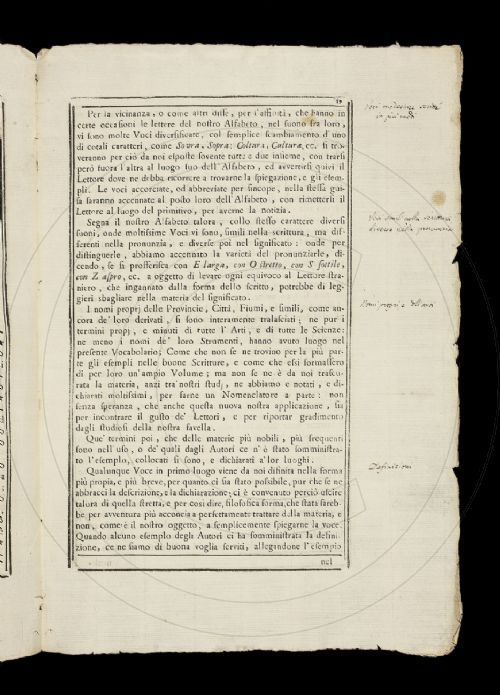 19
Per la vicinanza, o come altri disse, per l'affinità, che hanno in
certe occasioni le lettere del nostro Alfabeto, nel suono fra loro,
vi sono molte Voci diversificate, col semplice scambiamento d'uno
di cotali caratteri, come Sovra, Sopra; Coltura, Cultura, ec. si tro-
veranno per ciò da noi esposte sovente tutte e due insieme, con trarsi
però fuora l'altra al luogo suo dell'Alfabeto, ed avvertirsi quivi il
Lettore dove ne debba ricorrere a trovarne la spiegazione, e gli esem-
pli. Le voci accorciate, od abbreviate per sincope, nella stessa gui-
sa saranno accennate al posto loro dell'Alfabeto, con rimettersi il
Lettore al luogo del primitivo, per averne la notizia.
Segna il nostro Alfabeto talora, collo stesso carattere diversi
suoni, onde moltissime Voci vi sono, simili nella scrittura, ma dif-
ferenti nella pronunzia, e diverse poi nel significato: onde per
distinguerle, abbiamo accennato la varietà del pronunziarle, di-
cendo, se si profferisca con E larga, con O stretto, con S sottile,
con Z aspro, ec. a oggetto di levare ogni equivoco al Lettore stra-
niero, che ingannato dalla forma dello scritto, potrebbe di leg-
gieri sbagliare nella materia del significato.
I nomi proprj delle Provincie, Città, Fiumi, e simili, come an-
cora de' loro derivati, si sono interamente tralasciati; ne pur i
termini proprj, e minuti di tutte l'Arti, e di tutte le Scienze:
ne meno i nomi de' loro Strumenti, hanno avuto luogo nel
presente Vocabolario; Come che non se ne trovino per la più par-
te gli esempli nelle buone Scritture, e come che essi formassero
di per loro un'ampio Volume; ma non se ne è da noi trascu-
rata la materia, anzi tra' nostri studj, ne abbiamo e notati, e di-
chiarati moltissimi, per farne un Nomenclatore a parte: non
senza speranza, che anche questa nuova nostra applicazione, sia
per incontrare il gusto de' Lettori, e per riportar gradimento
dagli studiosi della nostra favella.
Que' termini poi, che delle materie più nobili, più frequenti
sono nell'uso, o de' quali dagli Autori ce n'è stato somministra-
to l'esempio, collocati si sono, e dichiarati a' lor luoghi.
Qualunque Voce in primo luogo viene da noi difinita nella forma
più propia, e più breve, per quanto ci sia stato possibile, pur che se ne
abbracci la descrizione, e la dichiarazione; ci è convenuto perciò uscire
talora di quella stretta, e per così dire, filosofica forma, che stata sareb-
be per avventura più acconcia a perfettamente trattare della materia, e
non, come è il nostro oggetto, a semplicemente spiegarne la voce.
Quando alcuno esempio degli Autori ci ha somministrata la defini-
zione, ce ne siamo di buona voglia serviti, allegandone l'esempio
nel
Voci medesime scritte
in più modi
Voci simili nella scrittura
diverse nella pronunzia
Nomi proprj e dell'arti
Definizioni